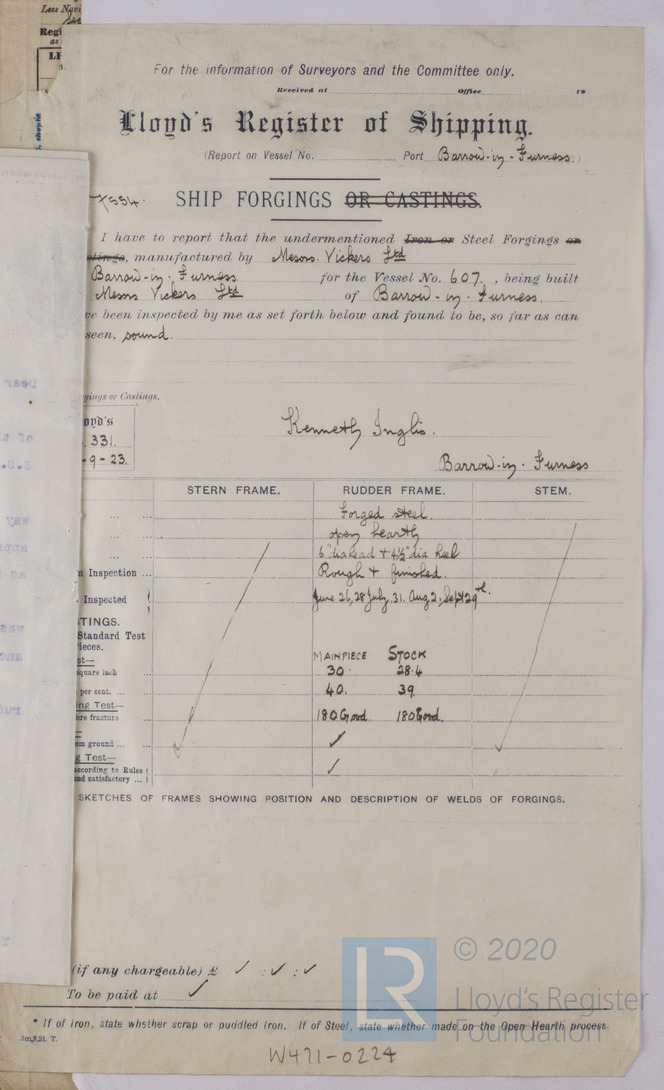 Less Navi
Regi
For the information of Surveyors and the Committee only.
Received at Office 19
Lloyd's Register of Shipping.
(Report on Vessel No. Port Barrow-in-Furness.)
7554. SHIP FORGINGS OR CASTINGS.
I have to report that the undermentioned Iron or Steel Forgings or
stings, manufactured by Messrs. Vickers Ltd
Barrow-in-Furness for the Vessel No. 607., being built
Messrs Vickers Ltd of Barrow-in-Furness.
ve been inspected by me as set forth below and found to be, so far as can
seen, sound.
gings or Castings.
oyd's
. 331.
-9-23.
Kenneth Inglis.
Barrow-in-Furness
STERN FRAME. RUDDER FRAME. STEM.
... ... Forged steel.
... ... open hearth
... 6" dia head + 4½" dia heel
n Inspection ... Rough + finished.
Inspected June 26, 28 July, 31. Aug 2, Sept 29th.
TINGS.
Standard Test
ieces.
st— MAINPIECE STOCK
square inch 30. 28.4
per cent. ... ... 40. 39
ng Test—
ore fracture 180 Good. 180 Good.
om ground ... ... ✓
g Test—
according to Rules
nd satisfactory ... ✓
SKETCHES OF FRAMES SHOWING POSITION AND DESCRIPTION OF WELDS OF FORGINGS.
(if any chargeable) £ ✓ : ✓ : ✓
To be paid at ✓
* If of Iron, state whether scrap or puddled iron. If of Steel, state whether made on the Open Hearth process.
8,21. T.
W471-0224
LR
© 2020
Lloyd's Register
Foundation